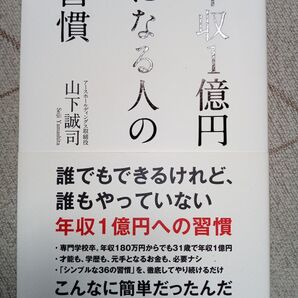 収1億円
になる人の
習慣
アースホールディングス取締役
山下誠司
Seiji Yamashita
誰でもできるけれど、
誰もやっていない
年収1億円への習慣
・専門学校卒、年収180万円からでも31歳で年収1億円
・才能も、学歴も、元手となるお金も、必要ナシ
・「シンプルな36の習慣」を、徹底してやり続けるだけ
こんなに簡単だったんだ